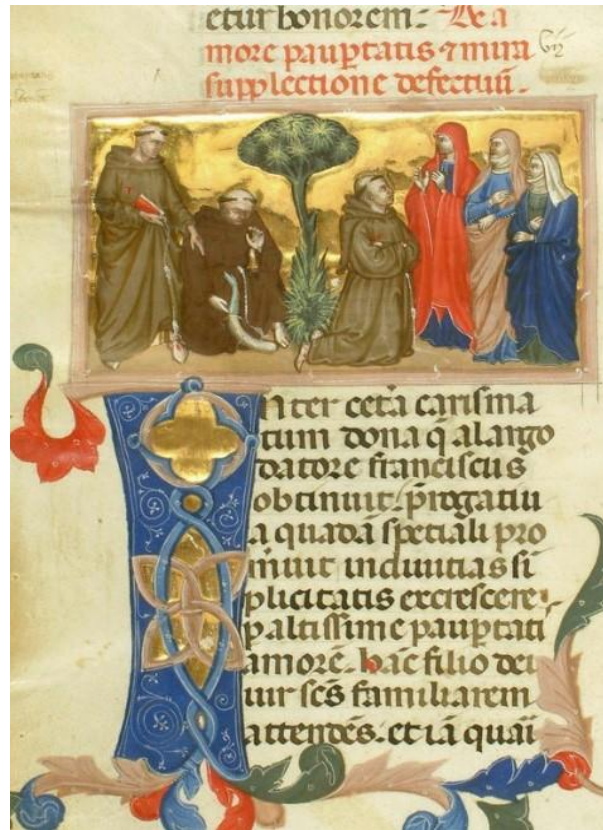 etur honorem. De a
more paup̄tatis ⁊ mira
supplectione defectuū.
Inter cet̄a carisma
tum dona q̄ a largo
datore franciscus
obtinuit. p̄rogatiu
a quadā speciali pro
m̄uit indiuitias si
plicitatis excrescere.
p altissime paup̄tati
amorē. hāc filio dei
uir sc̄s familiarem
attendēs. et iā quaī